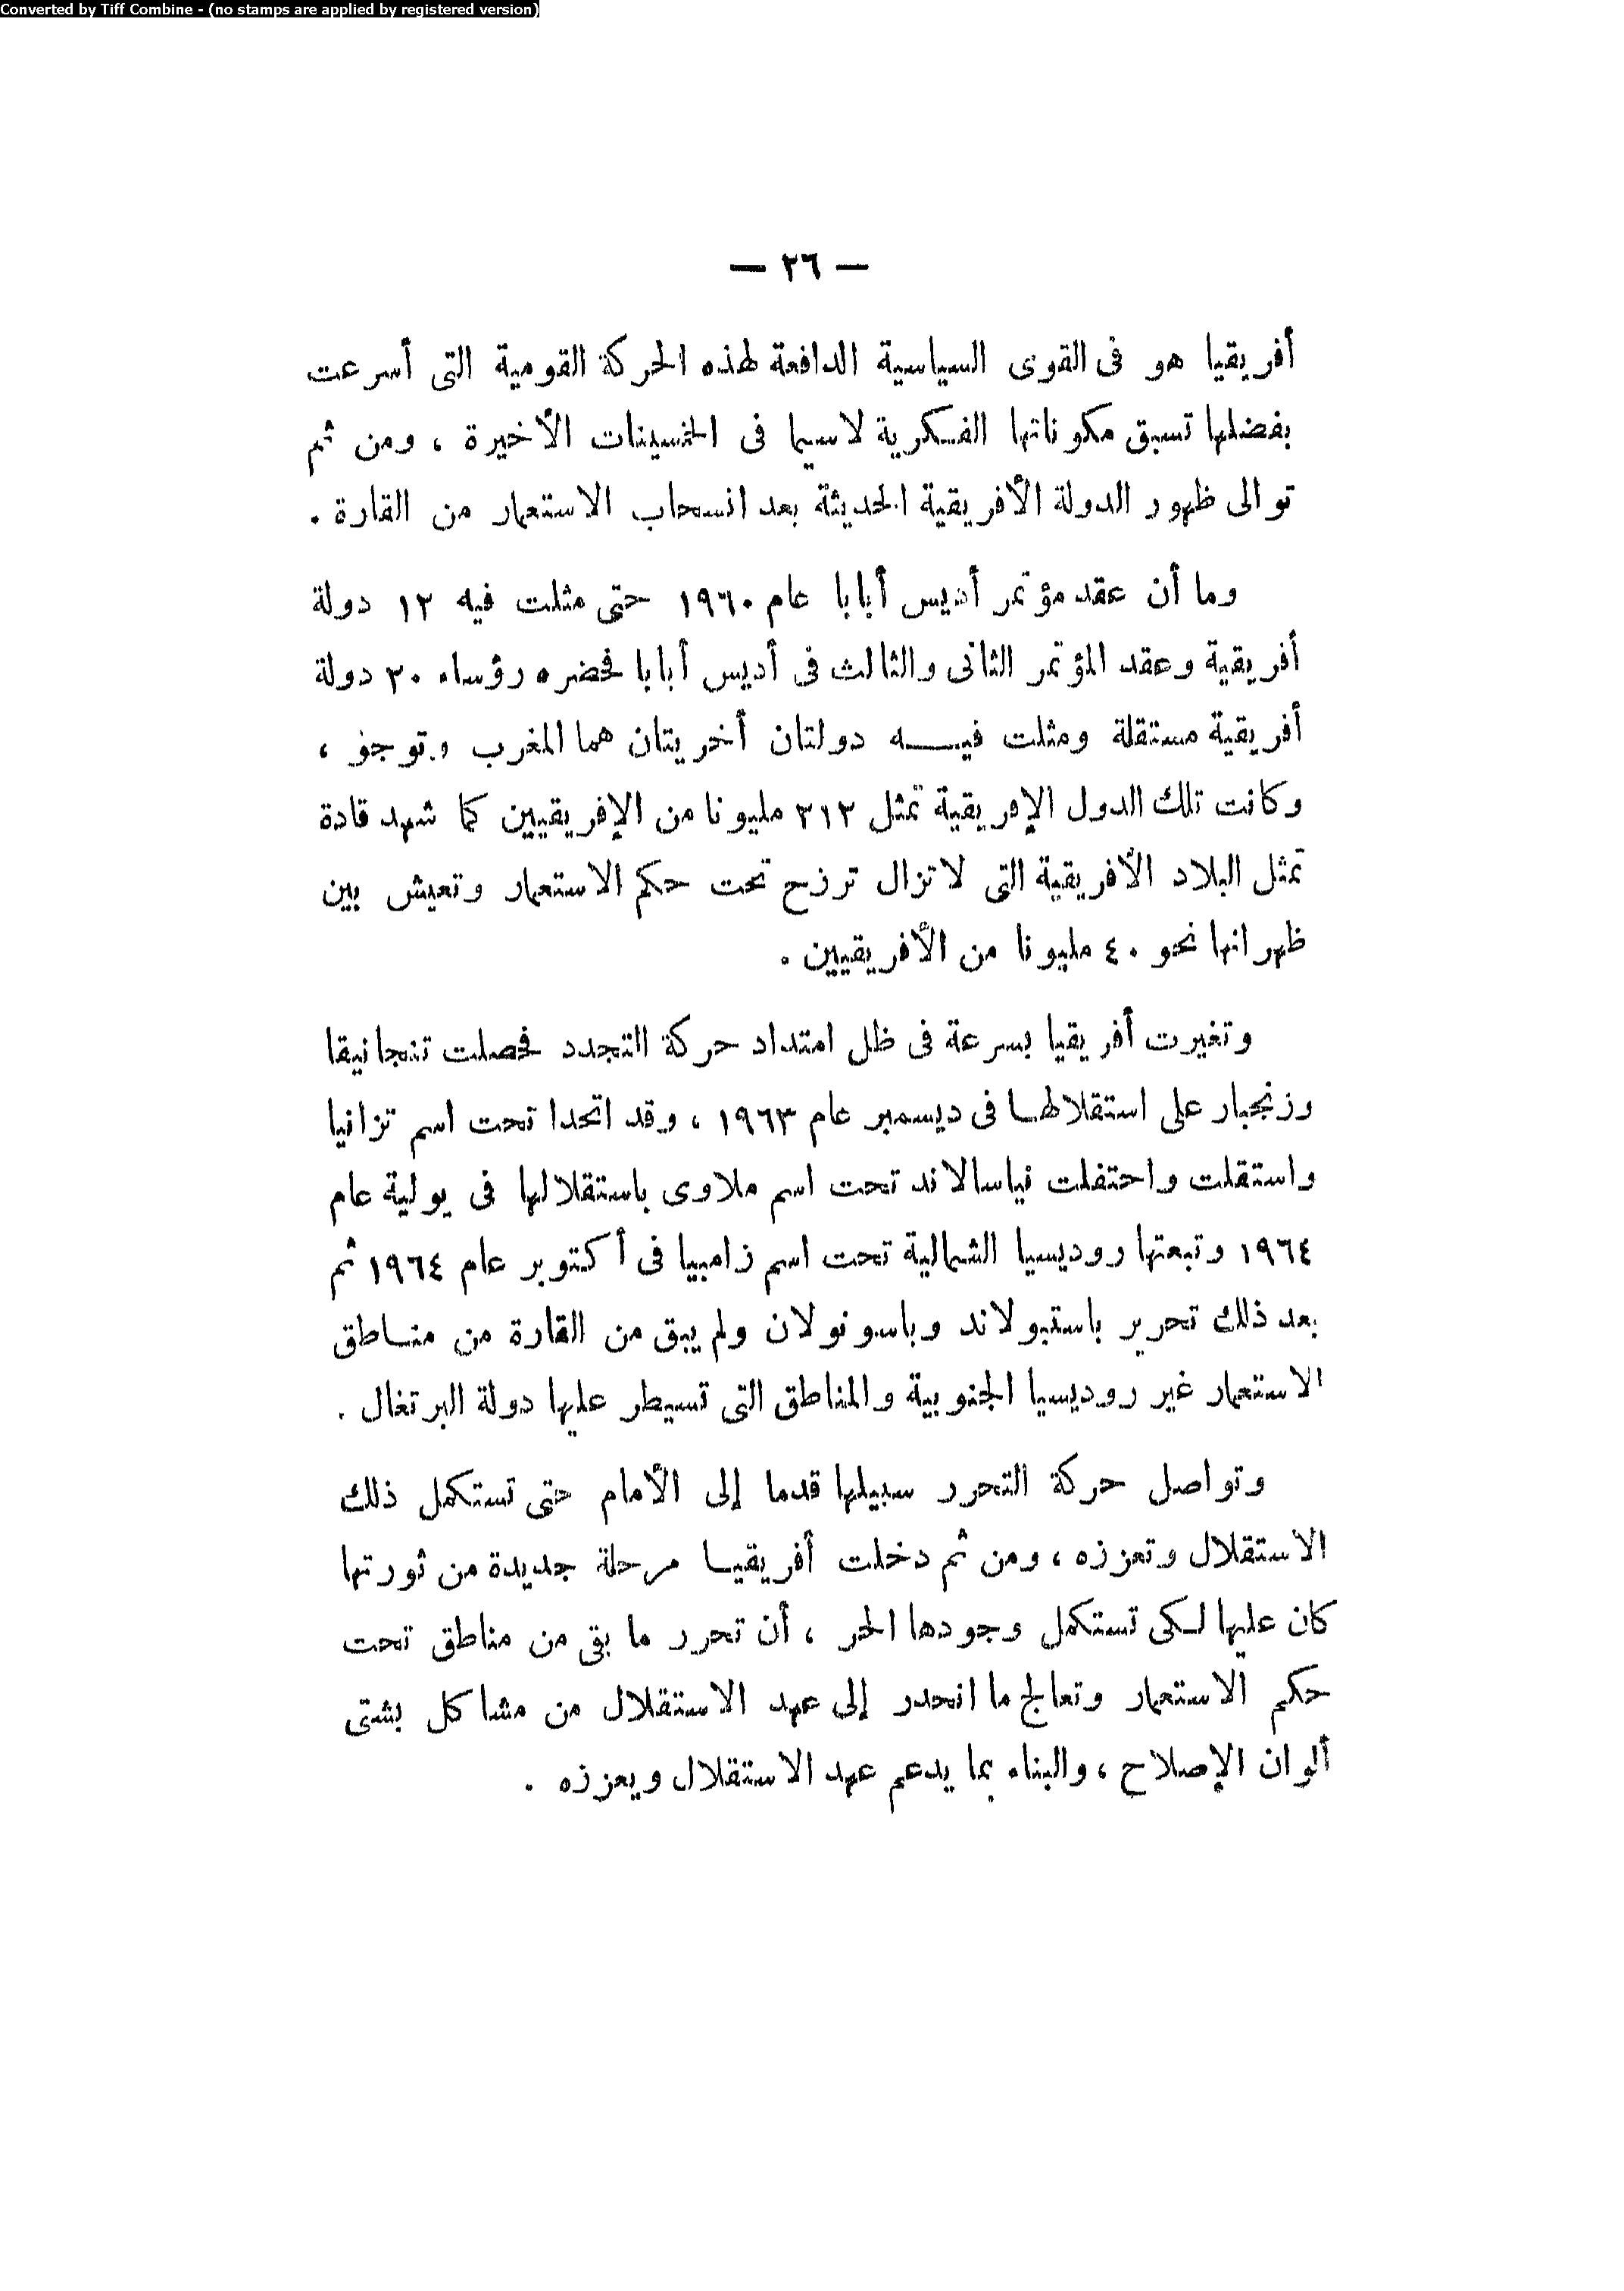 Converted by Tiff Combine - (no stamps are applied by registered version)
— ٢٦ —
أفريقيا هو فى القوى السياسية الدافعة لهذه الحركة القومية التى أسرعت
بفضلها تسبق مكوناتها الفكرية لاسيما فى الخمسينات الأخيرة ، ومن ثم
توالى ظهور الدولة الأفريقية الحديثة بعد انسحاب الاستعمار من القارة .
وما أن عقد مؤتمر أديس أبابا عام ١٩٦٠ حتى مثلت فيه ١٢ دولة
أفريقية وعقد المؤتمر الثانى والثالث فى أديس أبابا فحضره رؤساء ٣٠ دولة
أفريقية مستقلة ومثلت فيه دولتان أخريتان هما المغرب وتوجو ،
وكانت تلك الدول الإفريقية تمثل ٣١٢ مليونا من الإفريقيين كما شهد قادة
تمثل البلاد الأفريقية التى لا تزال ترزح تحت حكم الاستعمار وتعيش بين
ظهرانها نحو ٤٠ مليونا من الأفريقيين .
وتغيرت أفريقيا بسرعة فى ظل امتداد حركة التجدد فحصلت تنجانيقا
وزنجبار على استقلالها فى ديسمبر عام ١٩٦٣ ، وقد اتحدا تحت اسم تزانيا
واستقلت واحتفلت نياسالاند تحت اسم ملاوى باستقلالها فى يولية عام
١٩٦٤ وتبعتها روديسيا الشمالية تحت اسم زامبيا فى أكتوبر عام ١٩٦٤ ثم
بعد ذلك تحرير باستبولاند وباسونولان ولم يبق من القارة من مناطق
الاستعمار غير روديسيا الجنوبية والمناطق التى تسيطر عليها دولة البرتغال .
وتواصل حركة التحرر سبيلها قدما إلى الأمام حتى تستكمل ذلك
الاستقلال وتعززه ، ومن ثم دخلت أفريقيا مرحلة جديدة من ثورتها
كان عليها لكى تستكمل وجودها الحر ، أن تحرر ما بقى من مناطق تحت
حكم الاستعمار وتعالج ما انحدر إلى عهد الاستقلال من مشاكل بشتى
ألوان الإصلاح ، والبناء بما يدعم عهد الاستقلال ويعززه .